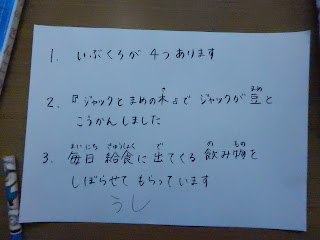 1. いぶくろが 4つあります
2. 『ジャックとまめの木』で ジャックが 豆と
こうかんしました
3. 毎日 給食に 出てくる 飲み物を
しぼらせて もらっています
うし